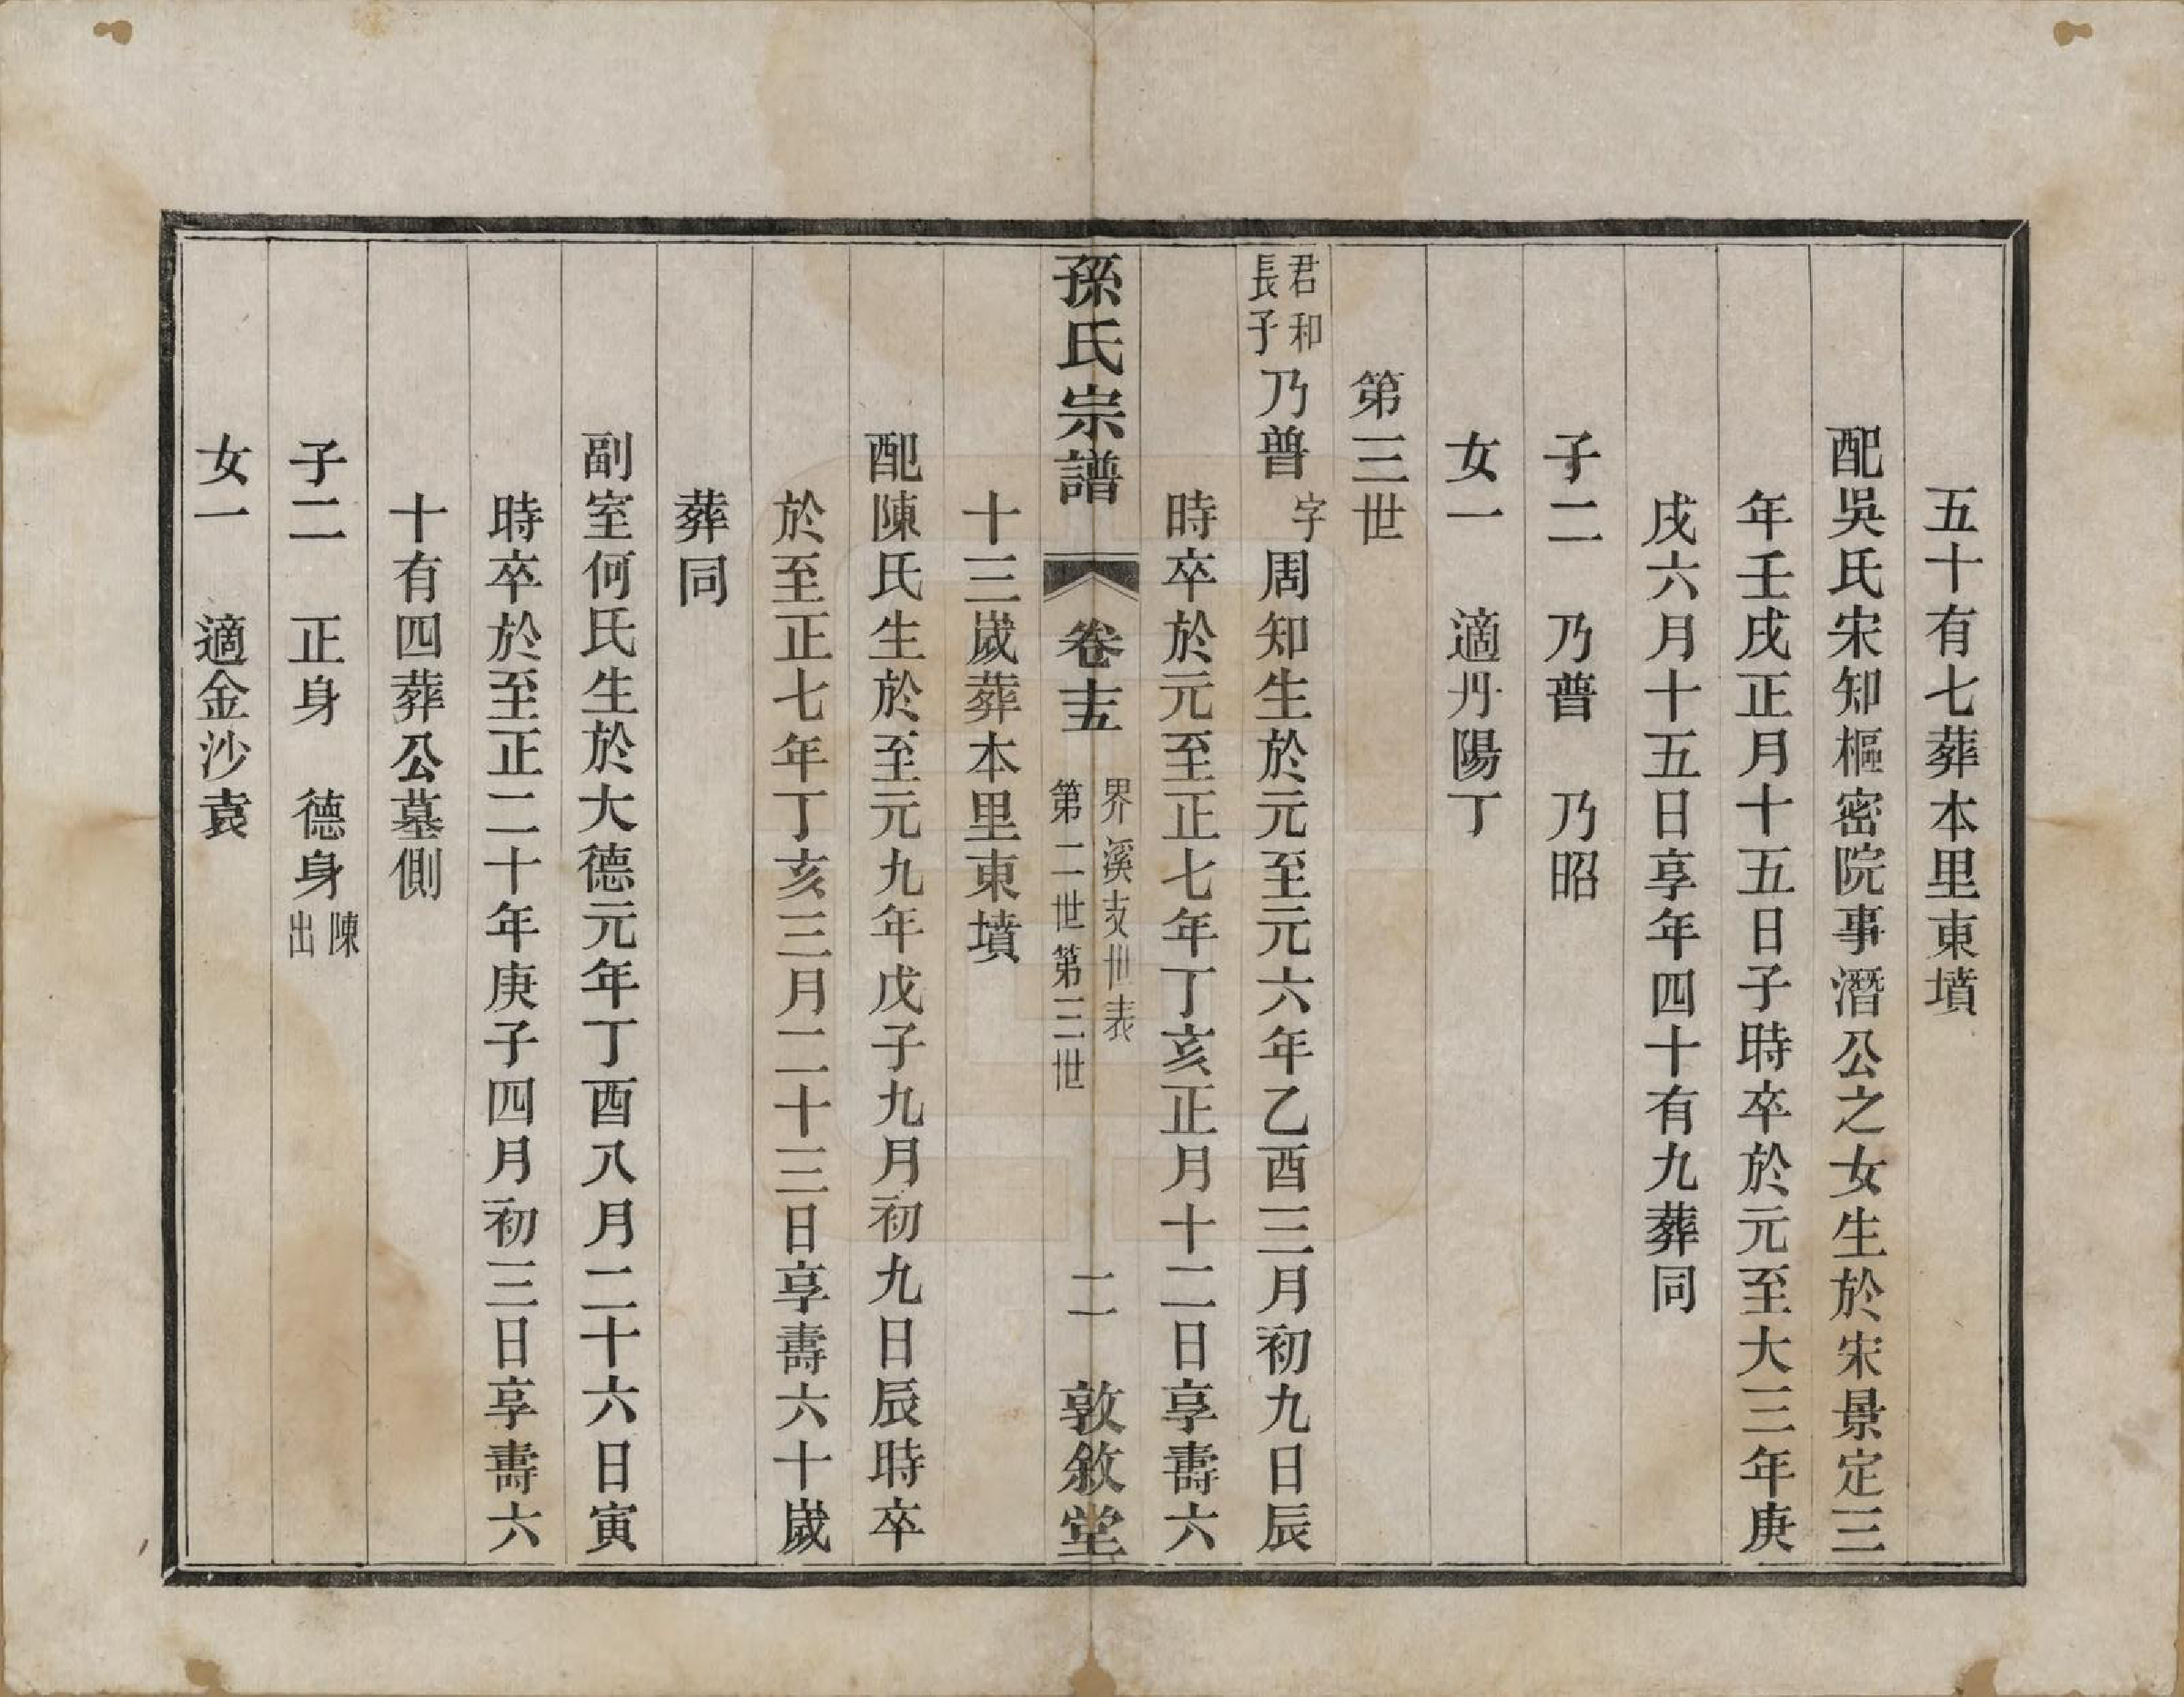 五十有七葬本里東墳
配吳氏宋知樞密院事潛公之女生於宋景定三
年壬戌正月十五日子時卒於元至大三年庚
戌六月十五日享年四十有九葬同
子二　乃普　乃昭
女一　適丹陽丁
第三世
君和長子乃普字周知生於元至元六年乙酉三月初九日辰
時卒於元至正七年丁亥正月十二日享壽六
十三歲葬本里東墳
孫氏宗譜　卷十五　界溪支世表　第二世第三世　二　敦敘堂
配陳氏生於至元九年戊子九月初九日辰時卒
於至正七年丁亥三月二十三日享壽六十歲
葬同
副室何氏生於大德元年丁酉八月二十六日寅
時卒於至正二十年庚子四月初三日享壽六
十有四葬公墓側
子二　正身　德身陳出
女一　適金沙袁